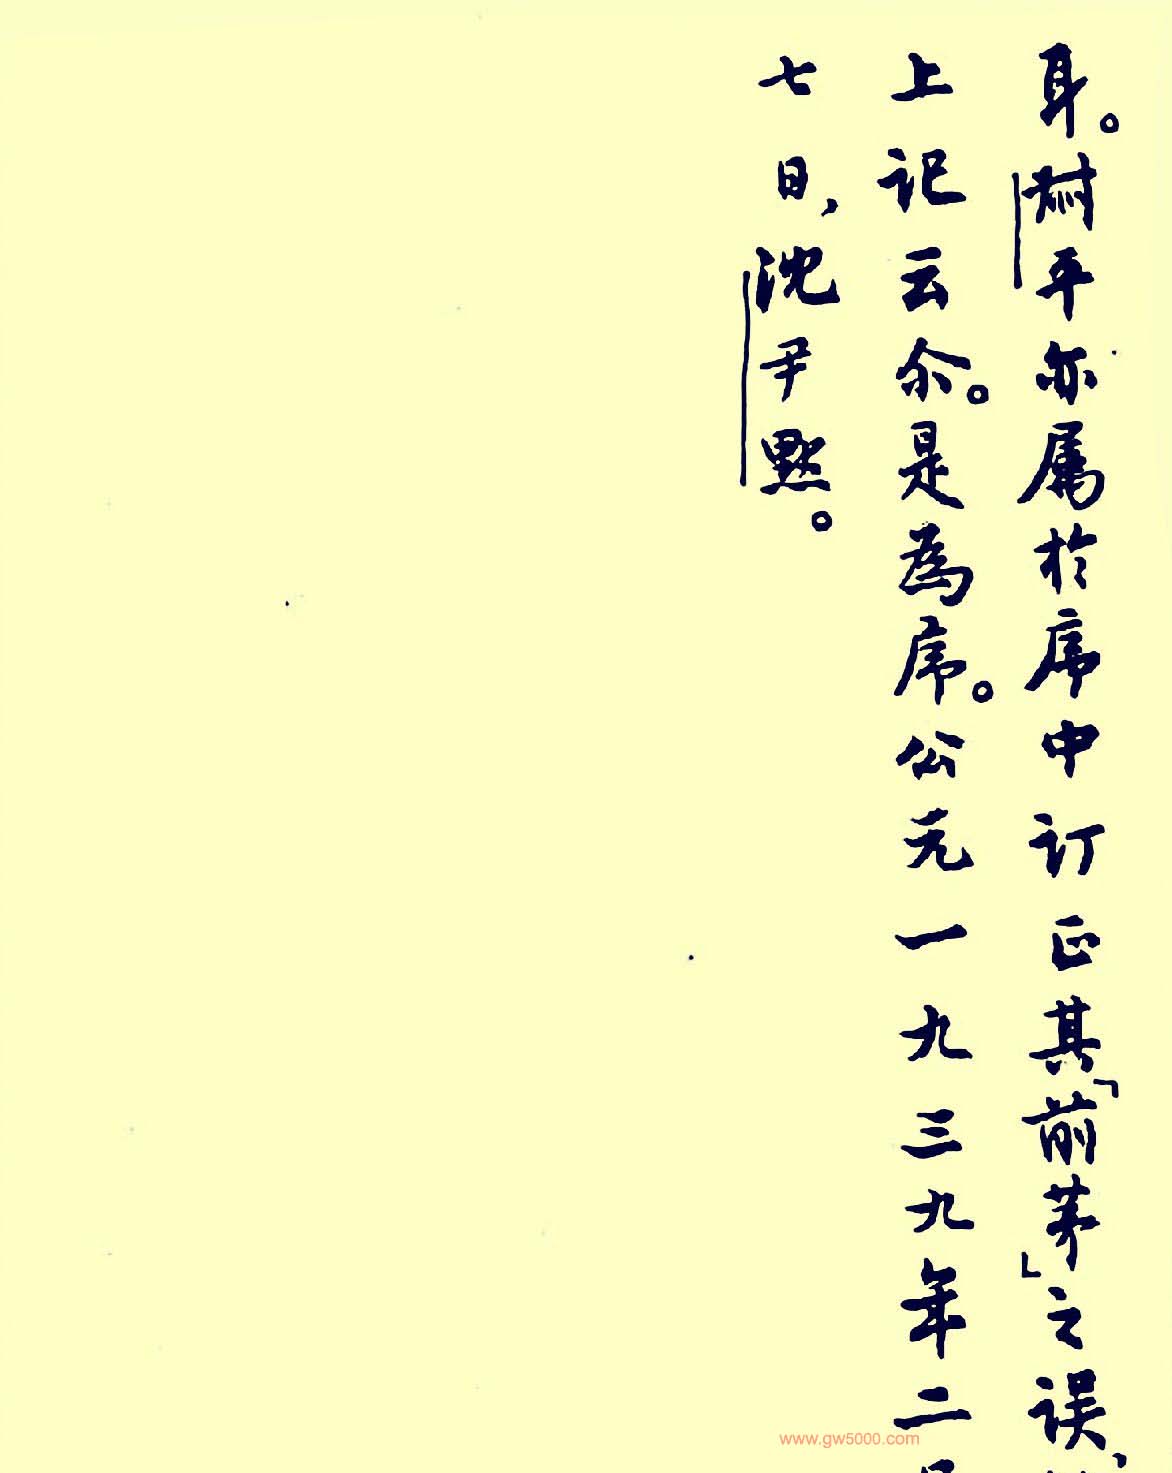 耳。尉平亦属於序中订正其「前茅」之误、
上记云尒。是為序。公元一九三九年二月
七日,沈尹默。
www.gw5000.com